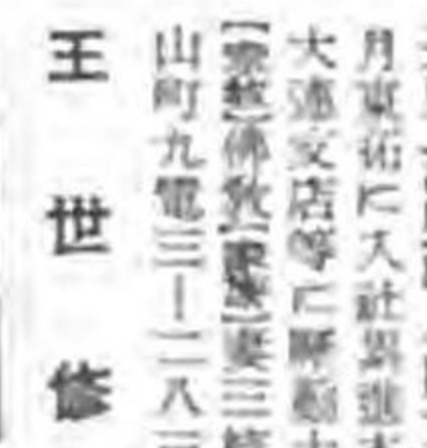 月東拓に入社累進
大連支店等に歴勤
【宗教】佛教【家族】妻三
山町九電三―二八
王世修